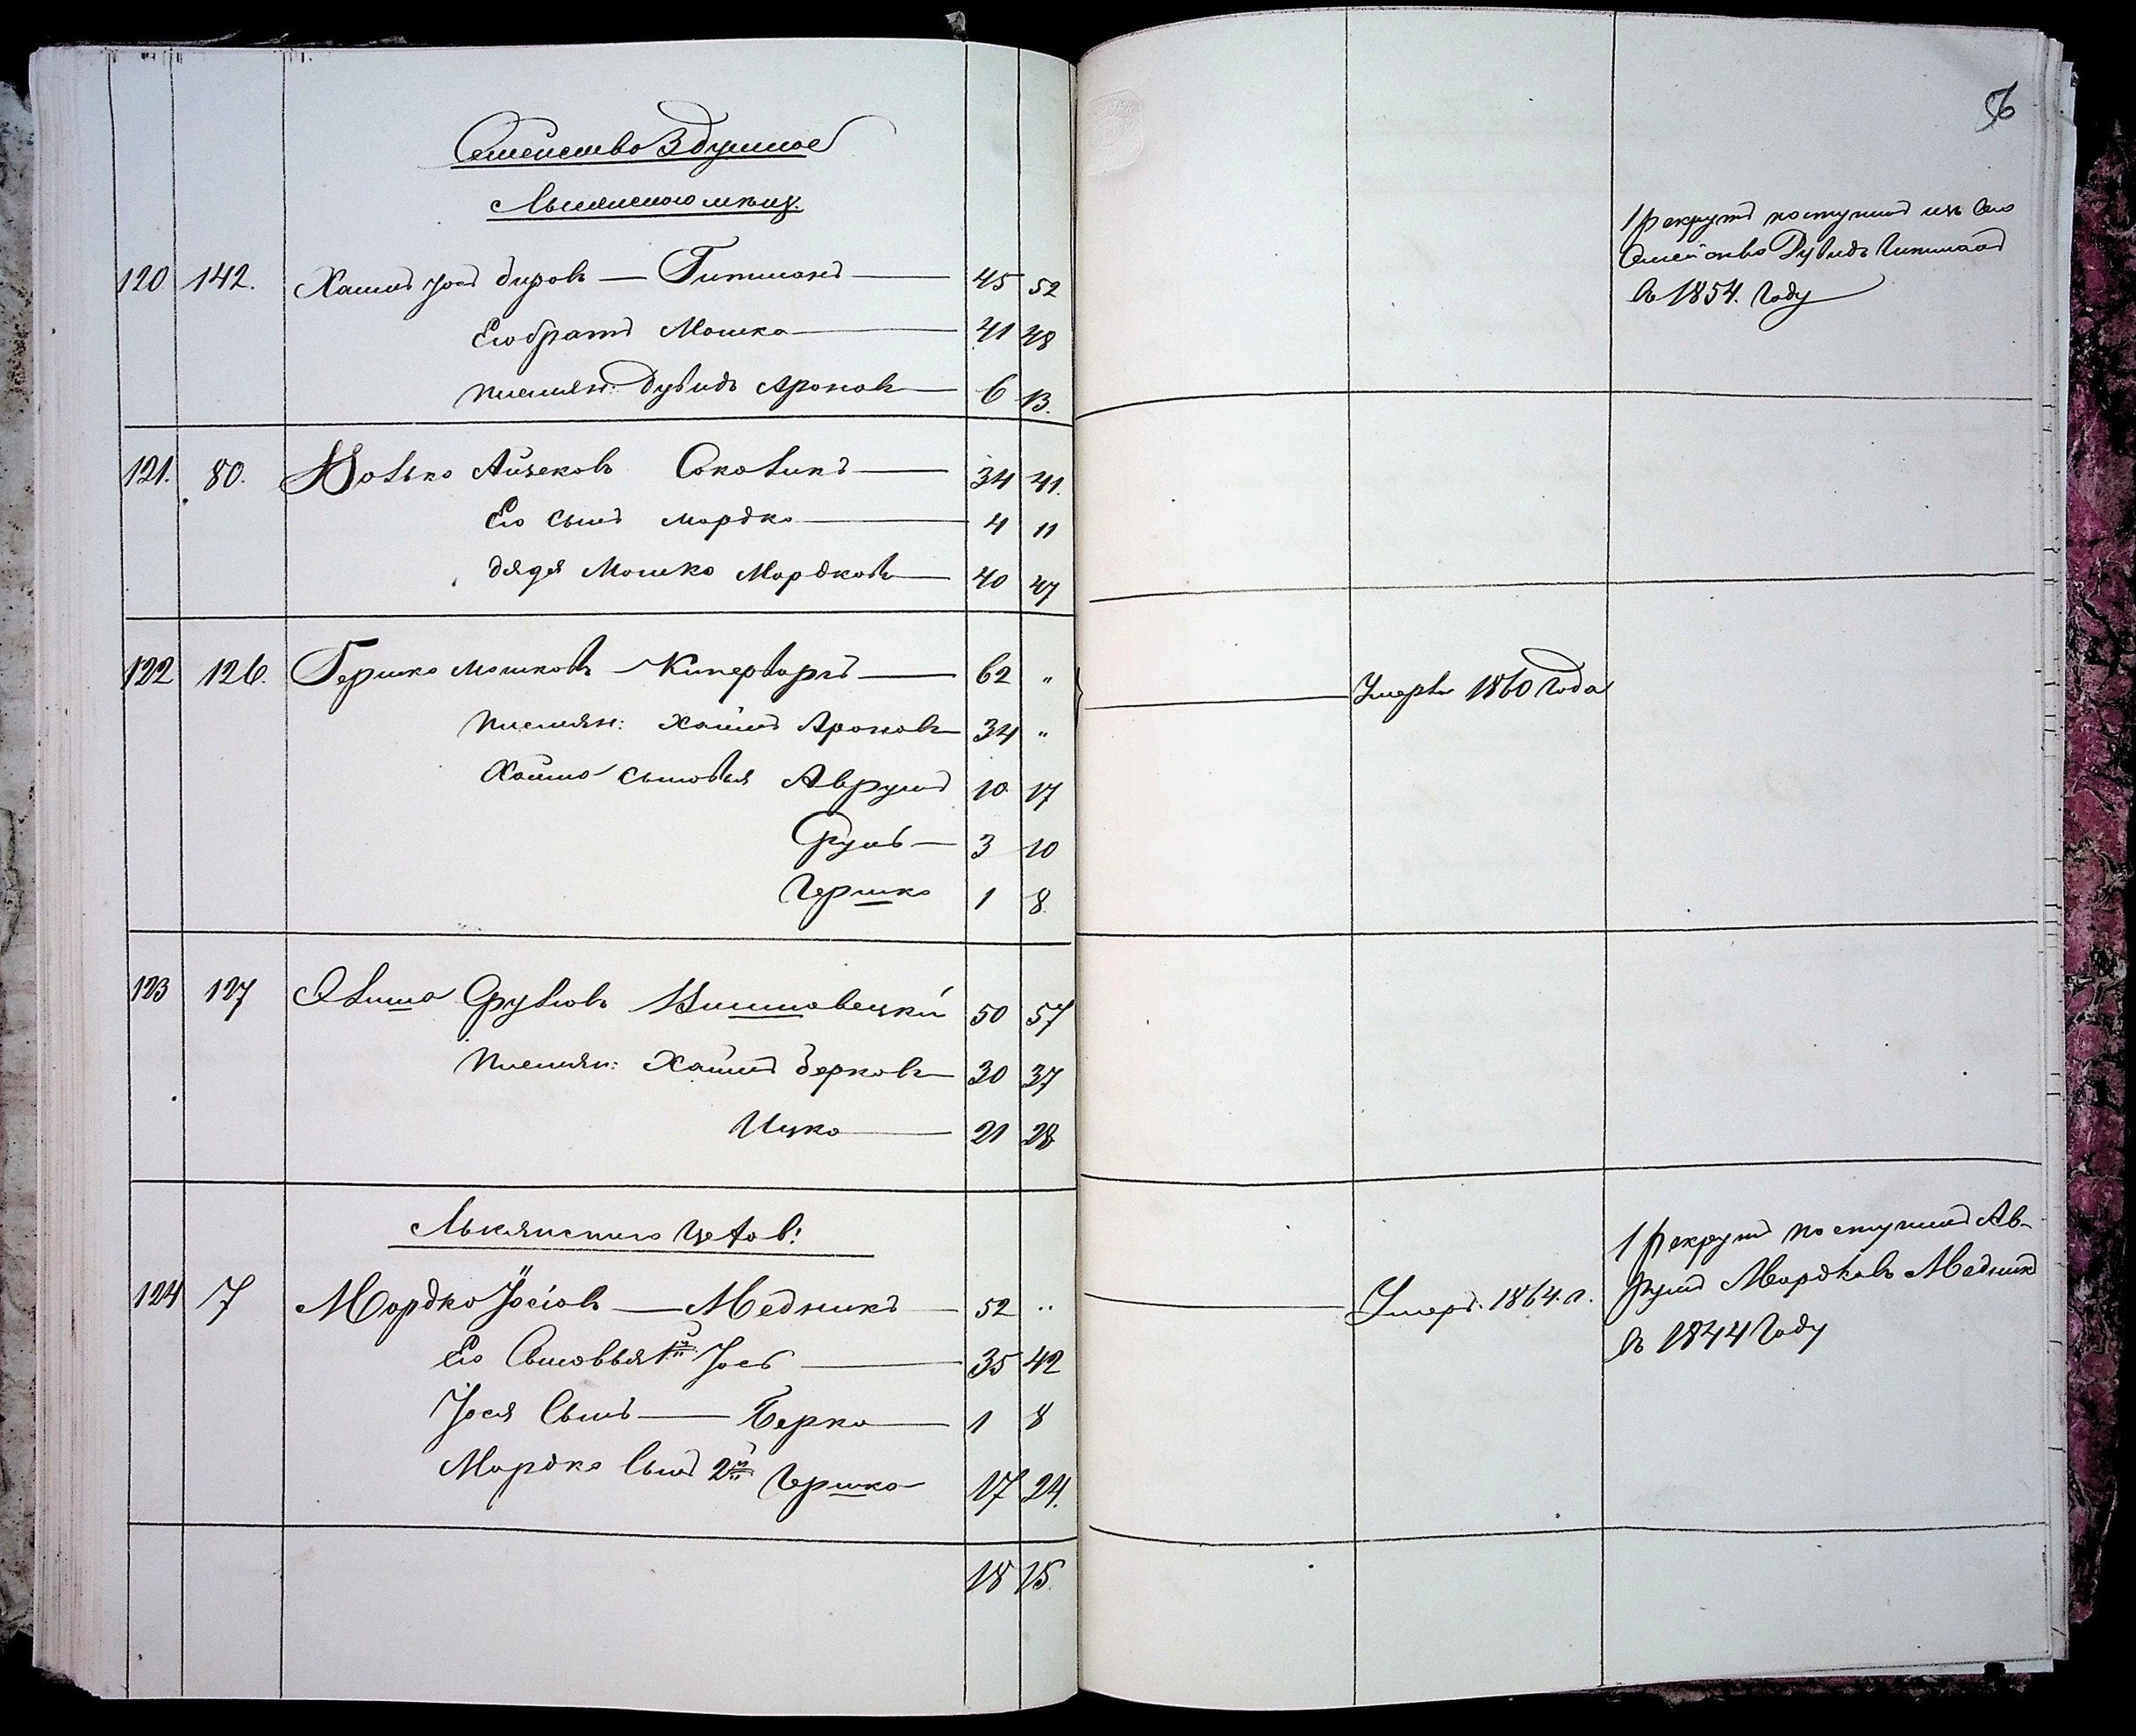 Семейство 3 душное
мѣщ.
120 142. Хаимъ Іось Дувовъ — Гитманъ — 45 52
Его братъ Мошко — 41 48
племян: Дувидъ Ароновъ — 6 13.
121. 80. Волько Айзековъ Соколикъ — 34 41.
Его сынъ Мордко — 4 11
дядя Мошко Мордковъ — 40 47
122 126. Гершко Мошковъ — Кипервара — 62 "
племян: Хаимъ Ароновъ — 34 "
Хаима сыновья Аврумъ 10 17
Сруль — 3 10
Гершко 1 8
123 127 Срулевъ Вишновецкій 50 57
племян: Хаимъ Берковъ — 30 37
Ицко — 21 28
124 7 Мордко Іосіовъ — Медникъ — 52 "
Его Сыновья 1й Іось — 35 42
Іося Сынъ — Берко — 1 8
Мордко Сынъ 2й Гершко 17 24.
18 15
6
1 рекрутъ поступилъ изъ сего
Семейства Дувидъ Гитманъ
въ 1854. Году
Умеръ 1860 года
Умеръ. 1864. г.
1 рекрутъ поступилъ Ав-
румъ Мордковъ Медникъ
въ 1844 Году